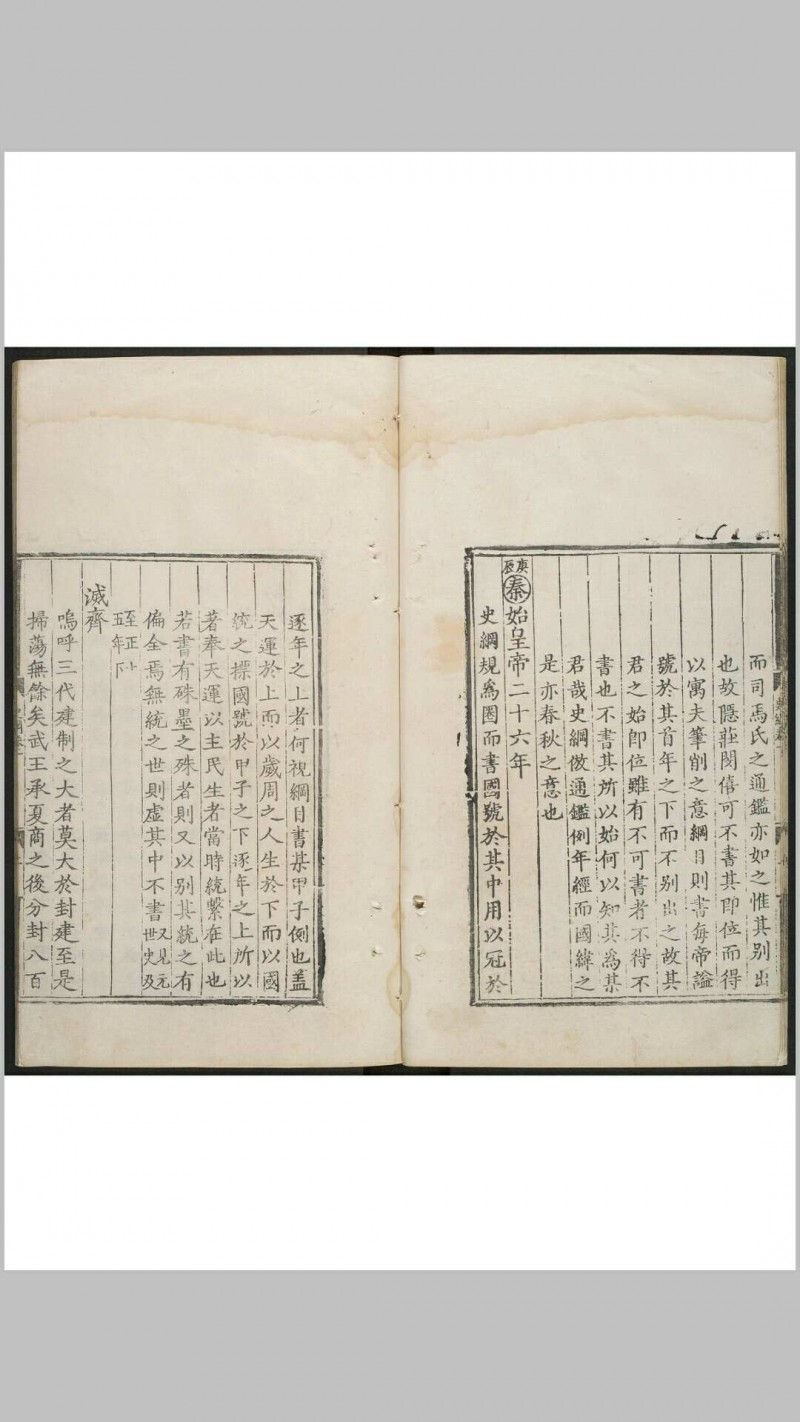 而司馬氏之通鑑亦如之惟其別出
也故隱莊閔僖可不書其即位而得
以寓夫筆削之意綱目則書每帝謚
號於其首年之下而不别出之故其
君之始即位雖有不可書者不得不
書也不書其所以始何以知其為某
君哉史綱倣通鑑例年經而國緯之
是亦春秋之意也
庚辰秦始皇帝二十六年
史綱規為圏而書國號於其中用以冠於
逐年之上者何視綱目書某甲子例也盖
天運於上而以歲周之人生於下而以國
統之標國號於甲子之下逐年之上所以
著奉天運以主民生者當時統繫在此也
若書有硃墨之殊者則又以别其統之有
偏全焉無統之世則虚其中不書又見元世史及
至正十五年下
滅齊
嗚呼三代建制之大者莫大於封建至是
掃蕩無餘矣武王承夏商之後分封八百